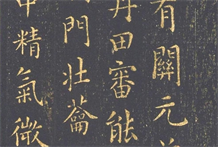 有關元
丹田審能
門壯蘥
中精氣微